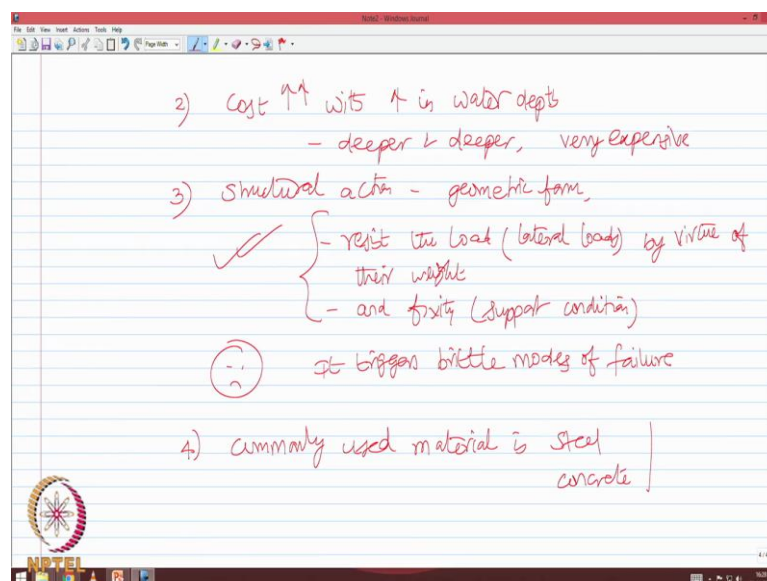 Note2 - Windows Journal
File Edit View Insert Actions Tools Help
Page Width
2) Cost ↑↑ with ↑ in water depth
- deeper & deeper, very expensive
3) structural action - geometric form,
- resist the load (lateral loads) by virtue of
their weight
- and fixity (support condition)
It triggers brittle modes of failure
4) commonly used material is steel
concrete
NPTEL
4/4